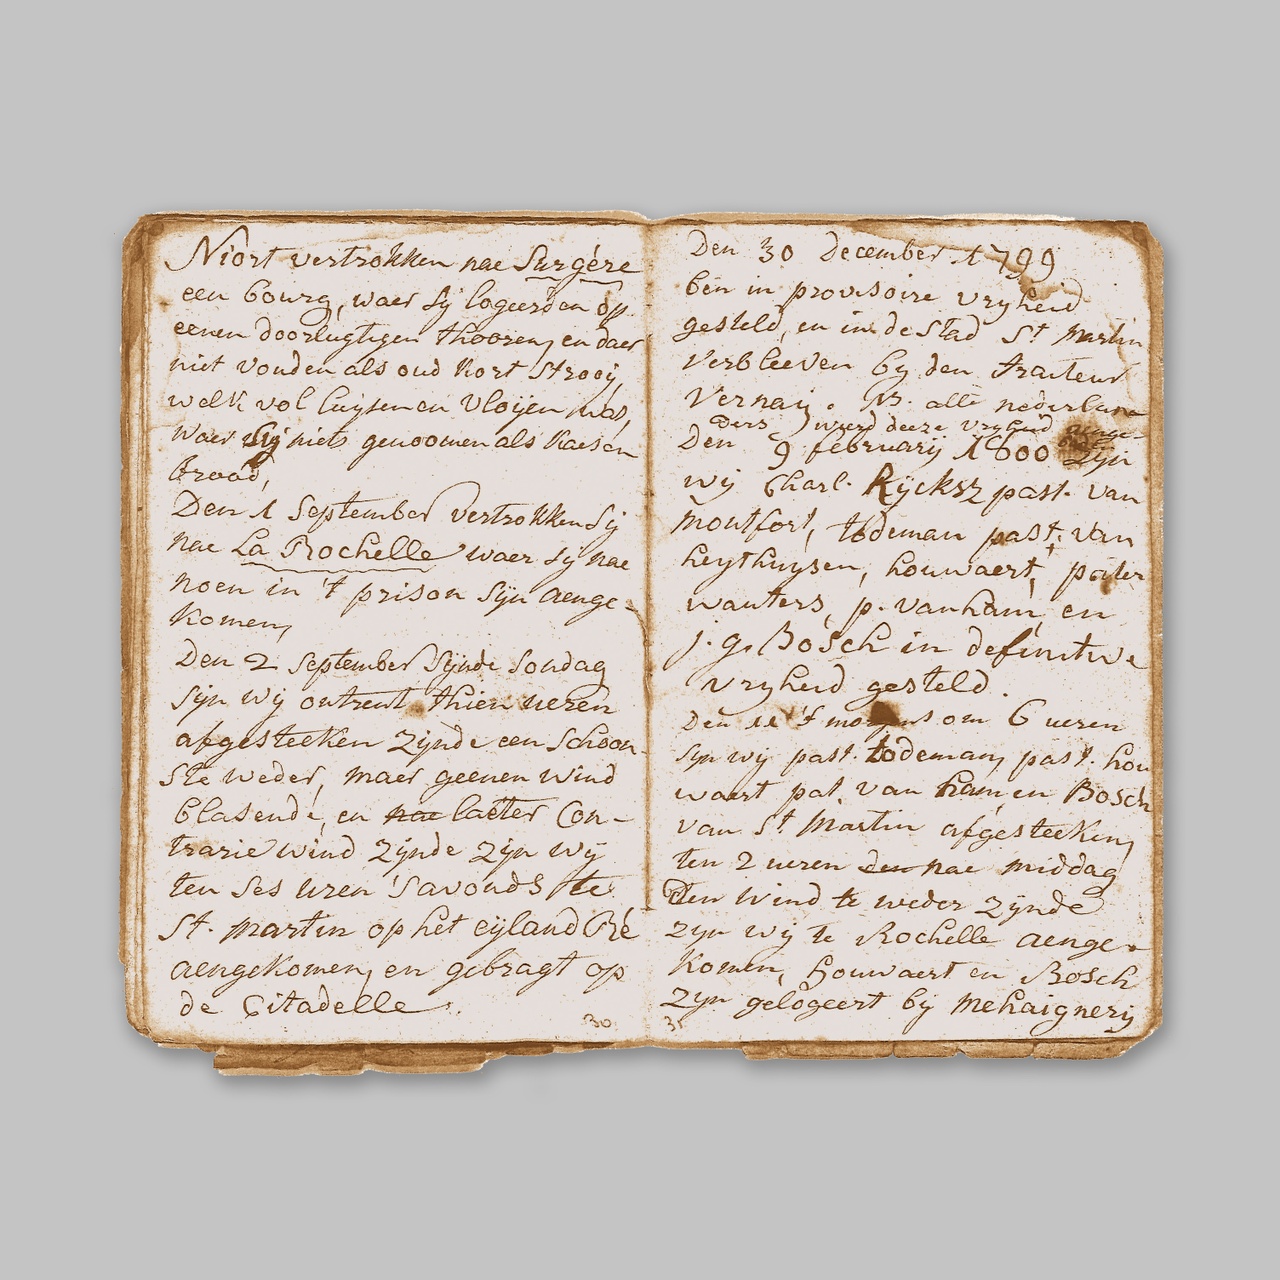 Niort vertrokken nae Surgére
een bourg, waer sy logeerden op
eenen doorlugtigen thooren, en daer
niet vonden als oud kort strooij,
welk vol luysen en vloijen was,
waer sij niets genoomen als kaes en
brood,
Den 1 September vertrokken sy
nae La Rochelle waer sy nae
noen in 't prison syn aenge-
komen,
Den 2 September synde sondag
syn wy ontrent thien ueren
afgesteeken zynde een schoon-
ste weder, maer geenen wind
blasende, en nae laeter Con-
trarie wind zynde zyn wy
ten ses uren 'savonds te
St. Martin op het eijland Ré
aengekomen, en gebragt op
de Citadelle.
30
Den 30 December 1799
ben in provisoire vryheid
gesteld, en in de stad St Martin
verbleeven by den traiteur
Vernaij. NB. alle nederlan
ders wierd deeze vryheid
Den 9 februarij 1800 zyn
wy Charl. Rijcksz past. van
montfort, todeman past. van
heythuysen, houwaert, pater
wauters, p. vanham, en
j. g. Bosch in definitive
vryheid gesteld.
Den 11 's morgens om 6 ueren
syn wy past. todeman, past. hou
waert pat. van ham en Bosch
van St Martin afgesteeken,
ten 2 ueren den nae middag
Den wind te weder zynde
zyn wy te Rochelle aenge-
komen, houwaert en Bosch
zyn gelogeert by mehaignerij
31